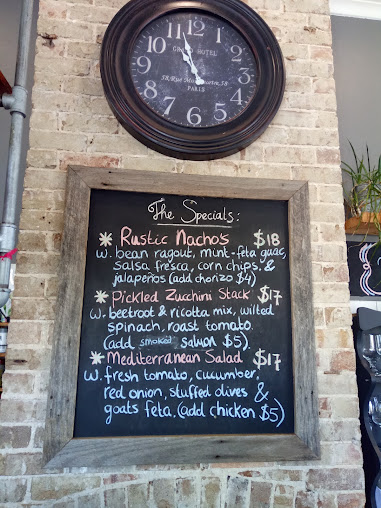 12
1
2
3
4
5
6
7
8
9
10
11
GRAND HOTEL
PARIS
The Specials:
* Rustic Nachos $18
w. bean ragout, mint-feta guac,
salsa fresca, corn chips, &
jalapeños (add chorizo $4)
* Pickled Zucchini Stack $17
w. beetroot & ricotta mix, wilted
spinach, roast tomato.
(add smoked salmon $5).
* Mediterranean Salad $17
w. fresh tomato, cucumber,
red onion, stuffed olives &
goats feta. (add chicken $5)